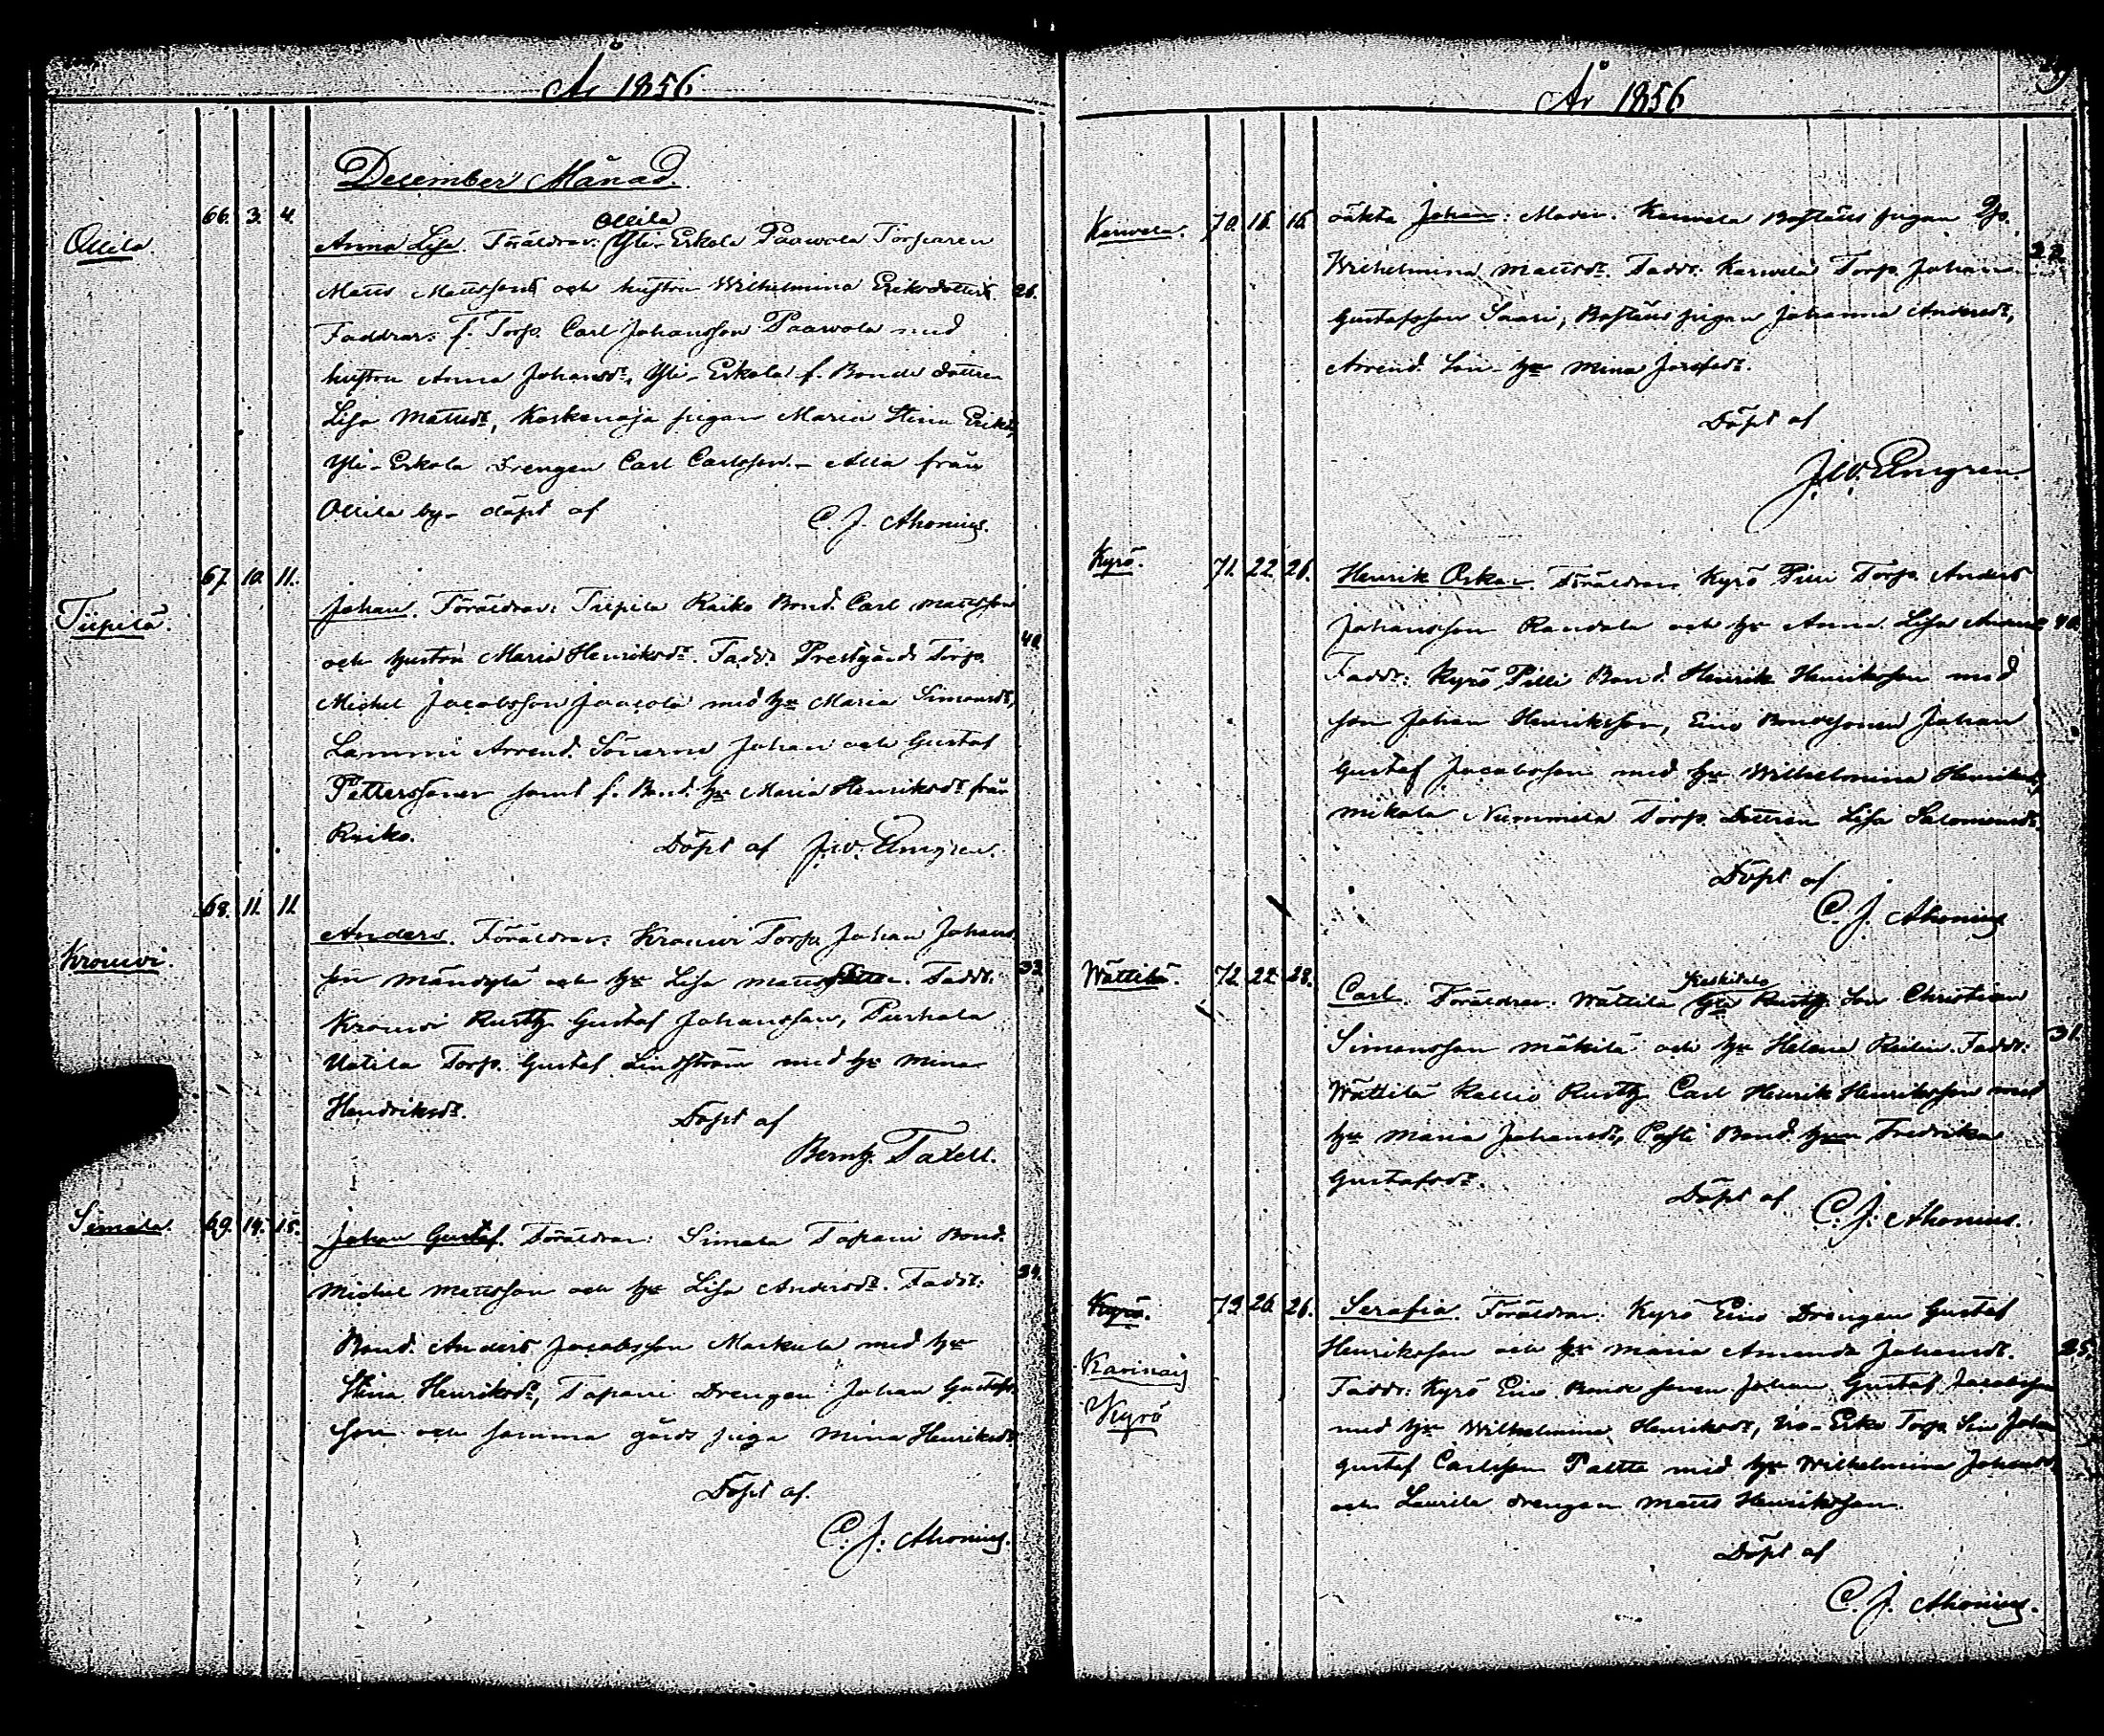 År 1856
December Månad.
Ollila 66. 3. 4.
Ollila
Anna Lisa. Föräldrar: Yli-Erkola Paawola Torparen
Matts Mattsson och hustru Wilhelmina Eriksdotter. 26.
Faddrar: f. Torp. Carl Johansson Paawola med
hustru Anna Johansdr, Yli-Erkola f. Bonde dottren
Lisa Mattsdr, Koskenoja pigan Maria Stina Eriksdr,
Yli-Erkola Drengen Carl Carlsson. - Alla från
Ollila by - döpt af C. J. Ahonius.
Tiipilä. 67. 10. 11.
Johan. Föräldrar: Tiipilä Raiko Bond. Carl Mattsson
och hustru Maria Henriksdr. Fadd: Prestgårds Torp. 40.
Michel Jacobsson Jaacola med hu Maria Simonsdr,
Lammi Arrend. Sönerne Johan och Gustaf
Petterssöner samt f. Bond. hu Maria Henriksdr från
Raiko. Döpt af J. W. Elmgren.
Krouwi. 68. 11. 11.
Anders. Föräldrar: Krouwi Torp. Johan Johans
son Mändylä och hu Lisa Mattsdotter. Faddr: 33.
Krouwi Rusth. Gustaf Johansson, Purhala
Uotila Torp. Gustaf Lindström med hu Mina
Hendriksdr. Döpt af
Bernh. Taxell.
Simala. 69. 14. 15.
Johan Gustaf. Föräldrar: Simala Tapani Bond.
Michel Mattsson och hu Lisa Andersdr. Faddr: 34.
Bond. Anders Jacobsson Markula med hu
Stina Henriksdr, Tapani Drengen Johan Gustafs
son och samma gårds piga Mina Henriksdr
Döpt af.
C. J. Ahonius.
År 1856
Karwela. 70. 16. 16. oäkta Johan: Moder: Karwela Boställs pigan
Wilhelmina Mattsdr. Faddr: Karwela Torp. Johan 22.
Gustafsson Saari, Boställs pigan Johanna Andersdr,
Arrend. Son- hu Mina Josefsdr.
Döpt af
J. W. Elmgren.
Kyrö. 71. 22. 26. Henrik Oskar. Föräldrar: Kyrö Pilli Torp. Anders
Johansson Randala och hu Anna Lisa Andersdr 40.
Faddr: Kyrö Pilli Bond. Henrik Henriksson med
son Johan Henriksson, Eino Bondesonen Johan
Gustaf Jacobsson med hu Wilhelmina Henriksdr,
Mikola Nummila Torp. Dottren Lisa Salomonsdr.
Döpt af
C. J. Ahonius
Wättilä. 72. 22. 28.
Keskitalo
Carl. Föräldrar: Wättilä Rusth. Son Christian
Simonsson Mäkilä och hu Helena Reilin. Faddr: 31.
Wättilä Kallio Rusth. Carl Henrik Henriksson med
hu Maria Johansdr, Posti Bond. hun Fredrika
Gustafsdr. Döpt af
C. J. Ahonius.
Kyrö. 73. 26. 26. Serafia. Föräldrar: Kyrö Eino Drengen Gustaf
Henriksson och hu Maria Amanda Johansdr. 25.
Karinais
Kyrö
Faddr: Kyrö Eino Bonde sonen Johan Gustaf Jacobsson
med hu Wilhelmina Henriksdr, Iso-Erko Torp. Son Johan
Gustaf Carlsson Paltta med hu Wilhelmina Johansdr,
och Laurila drengen Matts Henriksson.
Döpt af
C. J. Ahonius.